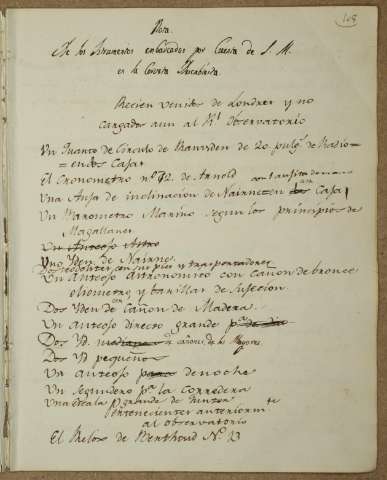 108
Nota.
De los Ystrumentos embarcados por Cuenta de S. M.
en la Corveta Atrevida.
Recien venidos de Londres y no
Cargados aun al Rl. Observatorio
Un Quarto de Circulo de Ramsden de 20. pulgs. de Radio =
= en dos Caxas
El Cronometro nº 72. de Arnold
Una Auja de inclinacion de Nairne en Caxa
Un Marometro Marino segun los principios de
Magallanes
Un Anteojo Astro
Uno Yden. de Nairne
Dos teodolites con sus pies y trasportadores
Un Anteojo astronomico con cañon de bronce
eliometro y tanillar de sugecion
Dos Yden con Cañon de Madera
Un anteojo directo grande
Dos Yd. mediano cañones de los Mayores
Dos Yd pequeños
Un anteojo de noche
Un Segundero pa. la Corredera
Una Escala grande de Gunter
Pertenecientes anteriormte
al observatorio
El Relox de Berthoud Nº. 13